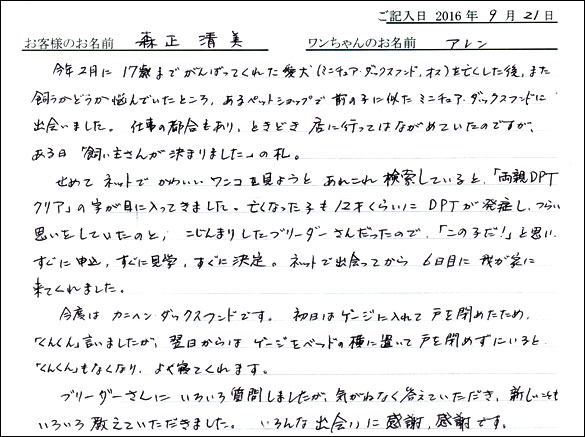 ご記入日 2016年 9月 21日
お客様のお名前 森正 清美 ワンちゃんのお名前 アレン
今年2月に 17歳までがんばってくれた愛犬(ミニチュア・ダックスフンド、オス)を亡くした後、また
飼うかどうか悩んでいたところ、あるペットショップで 前の子に似た ミニチュア・ダックスフンドに
出会いました。 仕事の都合もあり、ときどき 店に行ってはながめていたのですが、
ある日「飼い主さんが 決まりました」の札。
せめて ネットで かわいい ワンコを見ようと あれこれ 検索していると、「両親DPT
クリア」の字が目に入ってきました。亡くなった子も 12才くらいに DPTが発症し、つらい
思いをしていたのと、こじんまりしたブリーダーさんだったので、「この子だ!」と思い、
すぐに申込、すぐに見学、すぐに決定。 ネットで出会ってから 6日目に 我が家に
来てくれました。
今度は カニヘン・ダックスフンドです。 初日はゲージに入れて 戸を閉めたため、
「くんくん」言いましたが、翌日からは ゲージをベッドの横に置いて 戸を閉めずにいると
「くんくん」もなくなり、よく寝てくれます。
ブリーダーさんに いろいろ 質問しましたが、気がねなく答えていただき、新しいことも
いろいろ 教えていただきました。 いろんな出会いに 感謝、感謝です。